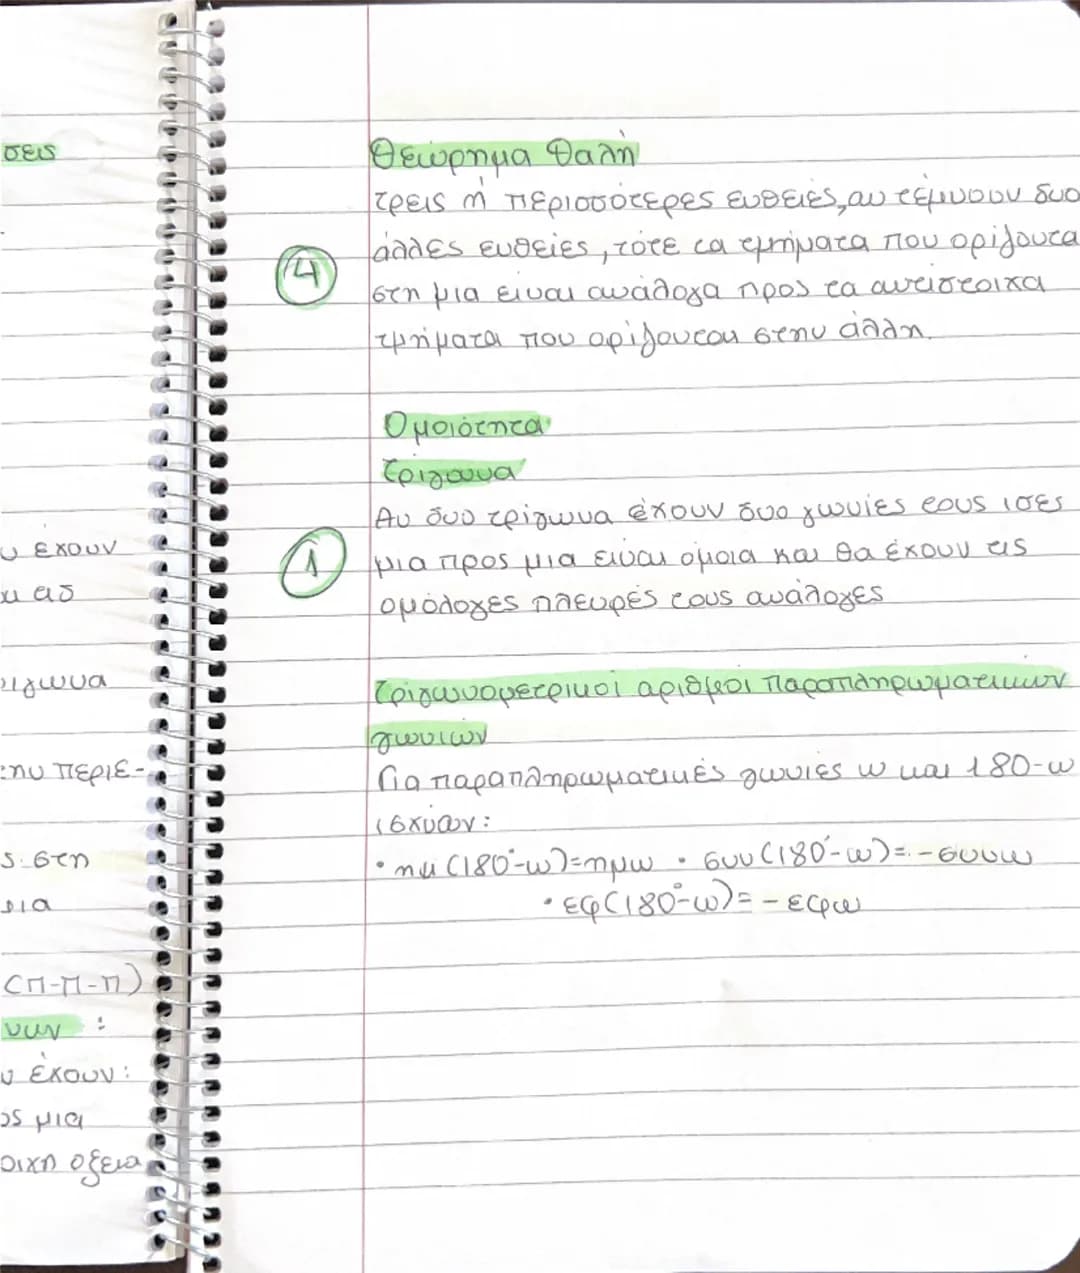 σεις
υ έχουν
ίγωνα
ην περιέ-
ς στη
(Π-Π-Π)
νων :
υ έχουν:
ος μια
οιχη οξεια
Θεώρημα Θαλή
τρεις ή περισσότερες ευθειές, αν τέμνουν δυο
άλλες ευθείες, τότε τα τμήματα που ορίζοντα
④ στη μια ειναι ανάλογα προς τα αντίστοιχα
τμήματα που ορίζονται στην άλλη.
Ομοιότητα
Τρίγωνα
Αν δυο τρίγωνα έχουν δυο γωνίες τους ισες
① μια προς μια ειναι όμοια και θα έχουν τις
ομόλογες πλευρές τους ανάλογες
Τριγωνομετρικοί αριθμοί παραπληρωματικών
γωνιών
Για παραπληρωματικές γωνίες ω και 180-ω
ισχύουν:
• ημ(180°-ω)=ημω • συν(180°-ω)= -συνω
• εφ(180°-ω)= - εφω